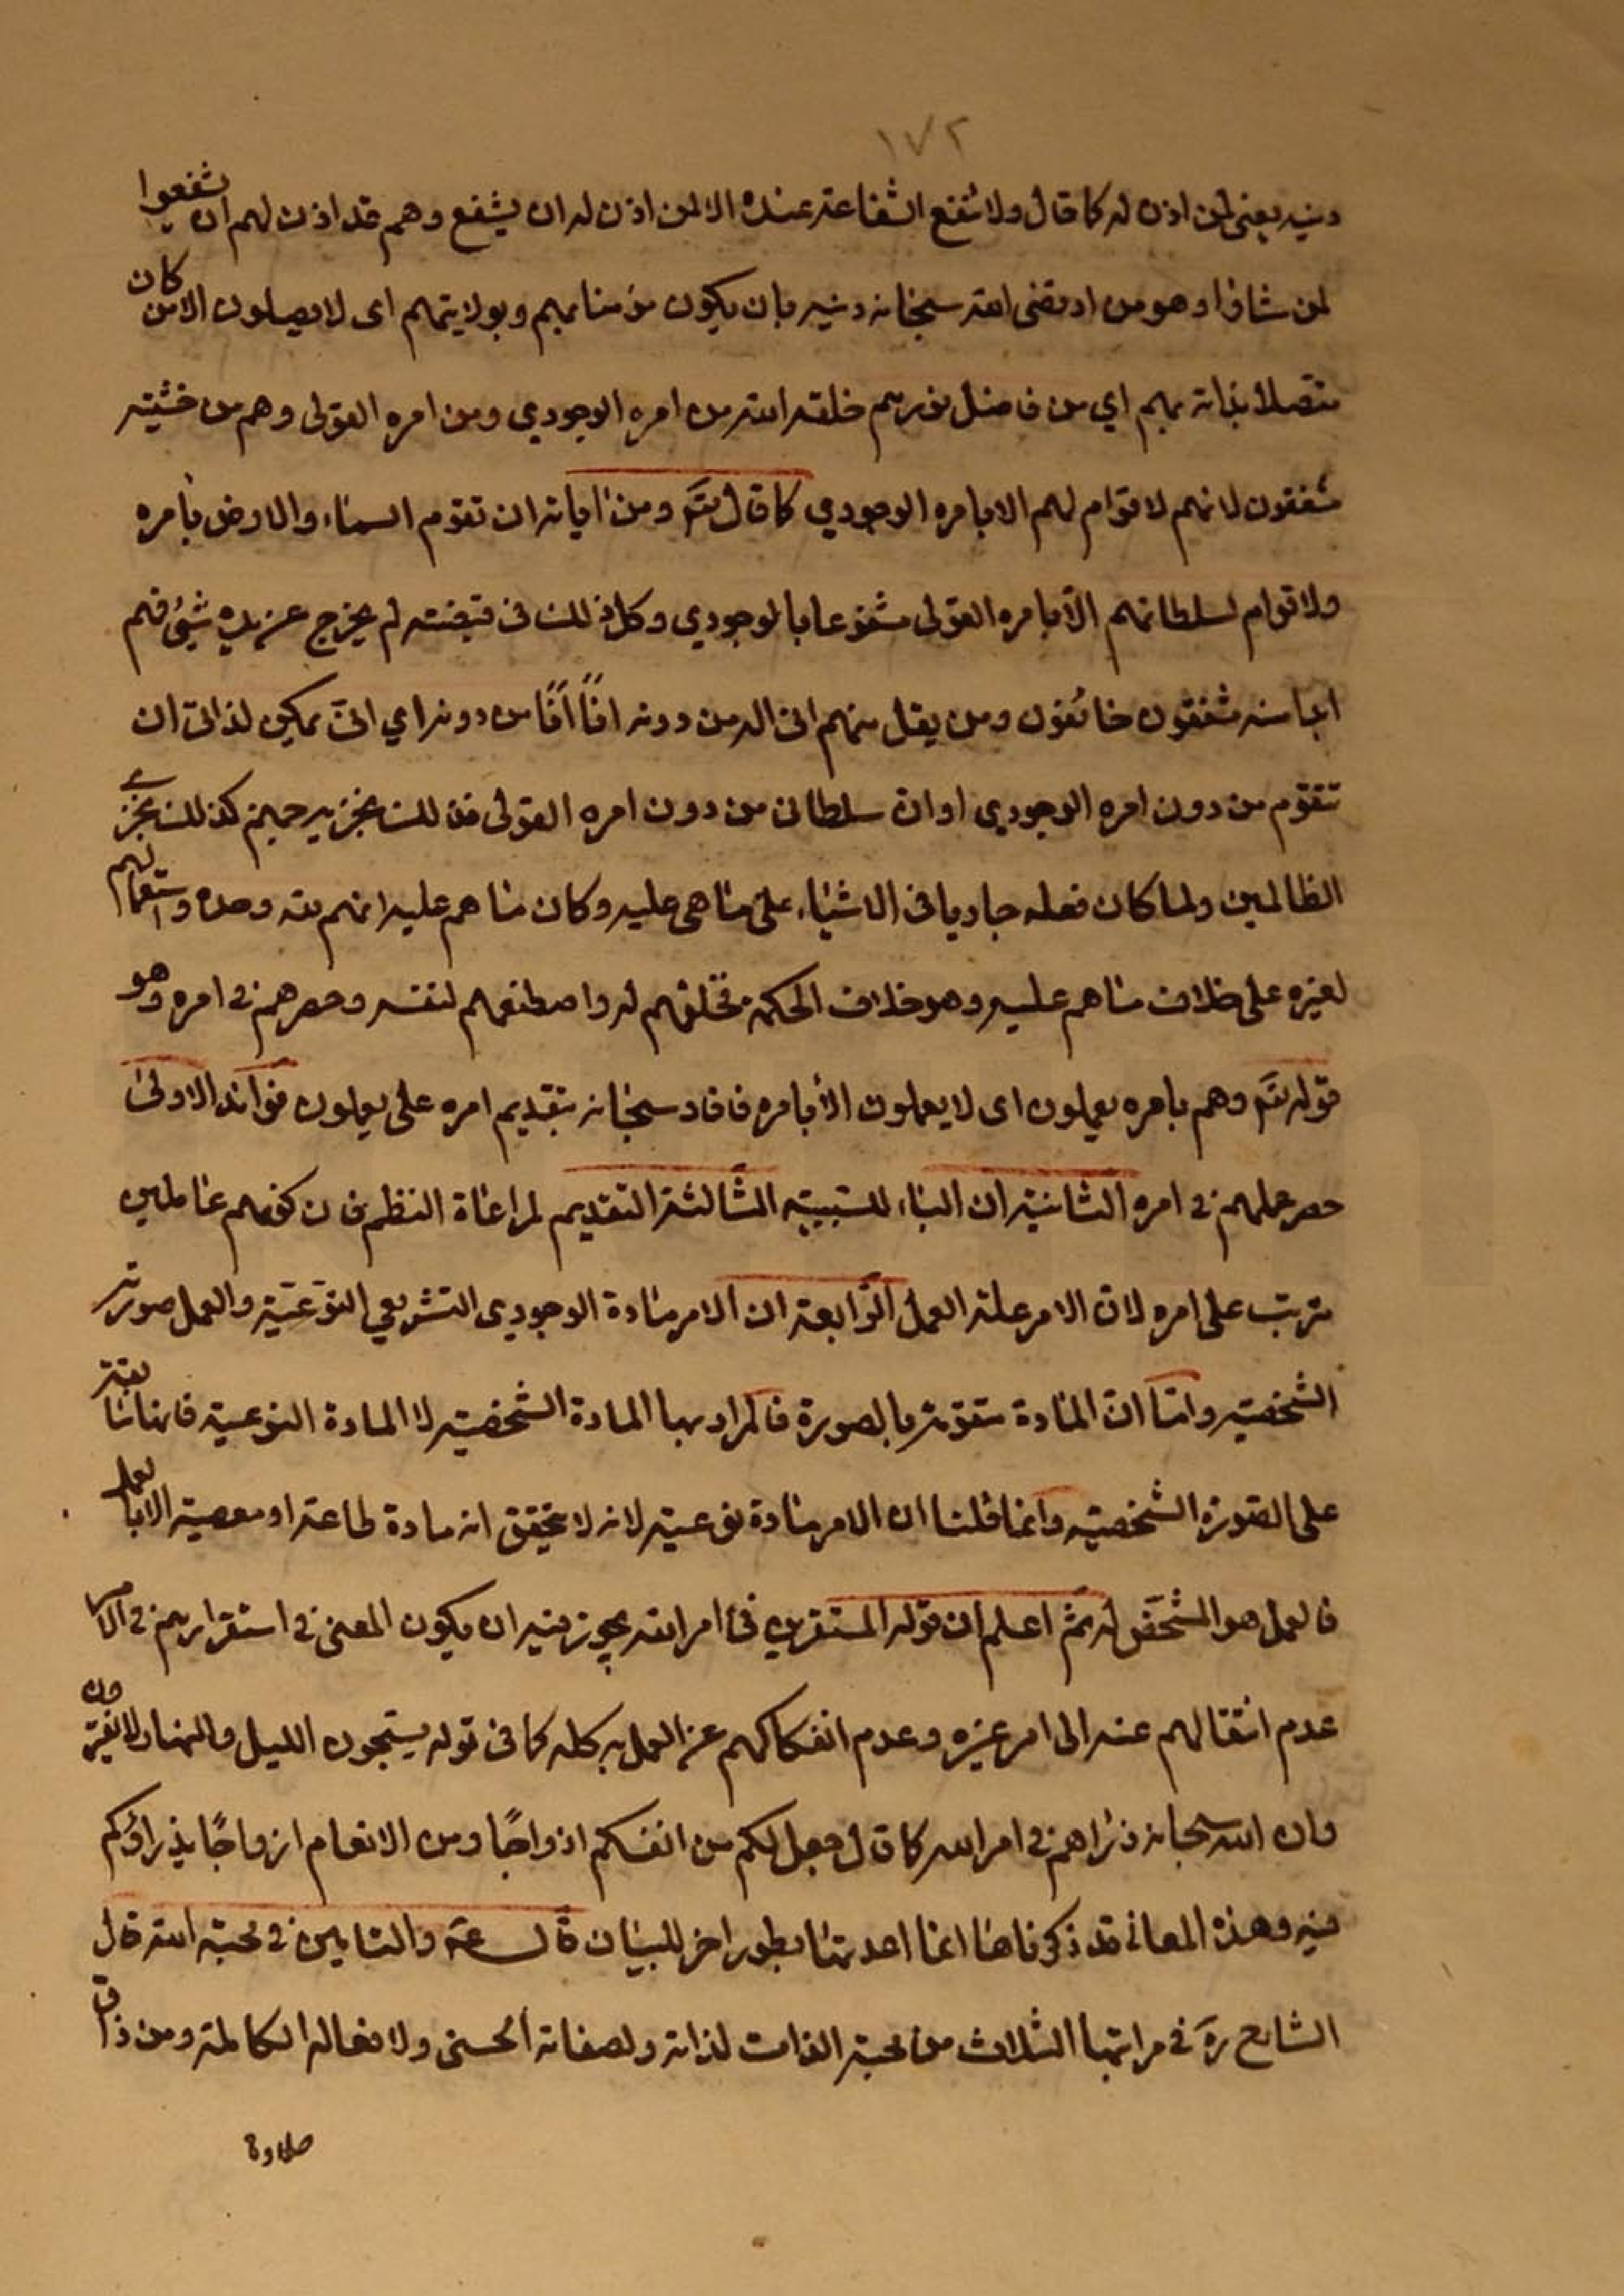 ١٧٢
دينه يعنى لمن اذن له كما قال ولا تنفع الشفاعة عنده الا لمن اذن له ان يشفع وهم قد اذن لهم ان يشفعوا
لمن شاؤا وهو من ارتضى الله سبحانه دينه بان يكون من منا بهم وبولايتهم اى لا يصلون الا من كان
متصلا بذاته بهم اي من فاضل نورهم خلقه الله من امره الوجودي ومن امره القولى وهم من خشيته
مشفقون لانهم لا قوام لهم الا بامره الوجودي كما قال تع ومن اياته ان تقوم السماء والارض بامره
ولا قوام لسلطانهم الا بامره القولى مشفوعا بالوجودي وكل ذلك فى قبضته لم يخرج عن يده شيئ فهم
ابدا منه مشفقون خائفون ومن يقل منهم انى اله من دونه افا افا من دونه اي انى يمكن لذاتى ان
تتقوم من دون امره الوجودي او ان سلطانى من دون امره القولى فذلك نجزيه جهنم كذلك نجزى
الظالمين ولما كان فعله جاريا فى الاشياء على ما هى عليه وكان ما هم عليه انهم لله وحده واستعمالهم
لغيره على خلاف ما هم عليه وهو خلاف الحكمة فخلقهم له واصطنعهم لنفسه وحصرهم فى امره وهو
قوله تع وهم بامره يعملون اى لا يعملون الا بامره فافاد سبحانه بتقديم امره على يعملون فوائد الاولى
حصر عملهم فى امره الثانية ان الباء للسببية الثالثة التقديم لمراعاة النظم فان كونهم عاملين
مترتب على امره لان الامر علة العمل الرابعة ان الامر مادة الوجودى التشريعي النوعية والعمل صورته
الشخصية واما ان المادة متقومة بالصورة فالمراد بها المادة الشخصية لا المادة النوعية فانها سابقة
على الصورة الشخصية وانما قلنا ان الامر مادة نوعية لانه لا يتحقق انه مادة طاعة او معصية الا بالعمل
فالعمل هو المشخص له ثم اعلم ان قوله المستقرين فى امر الله يجوز فيه ان يكون المعنى فى استقرارهم فى الامر
عدم انتقالهم عنه الى امر غيره وعدم انفكاكهم عن العمل به كله كما فى قوله يسبحون الليل والنهار لا يفترون
وان الله سبحانه ذراهم فى امر الله كما قال جعل لكم من انفسكم ازواجا ومن الانعام ازواجا يذراؤكم
فيه وهذه المعانى قد ذكرناها انما اعدتها بطور اخر للبيان قال عه والتامين فى محبة الله قال
الشارح ره فى مراتبها الثلاث من محبة الذات لذاته ولصفاته الحسنى ولافعاله الكاملة ومن ذاق
حلاوة